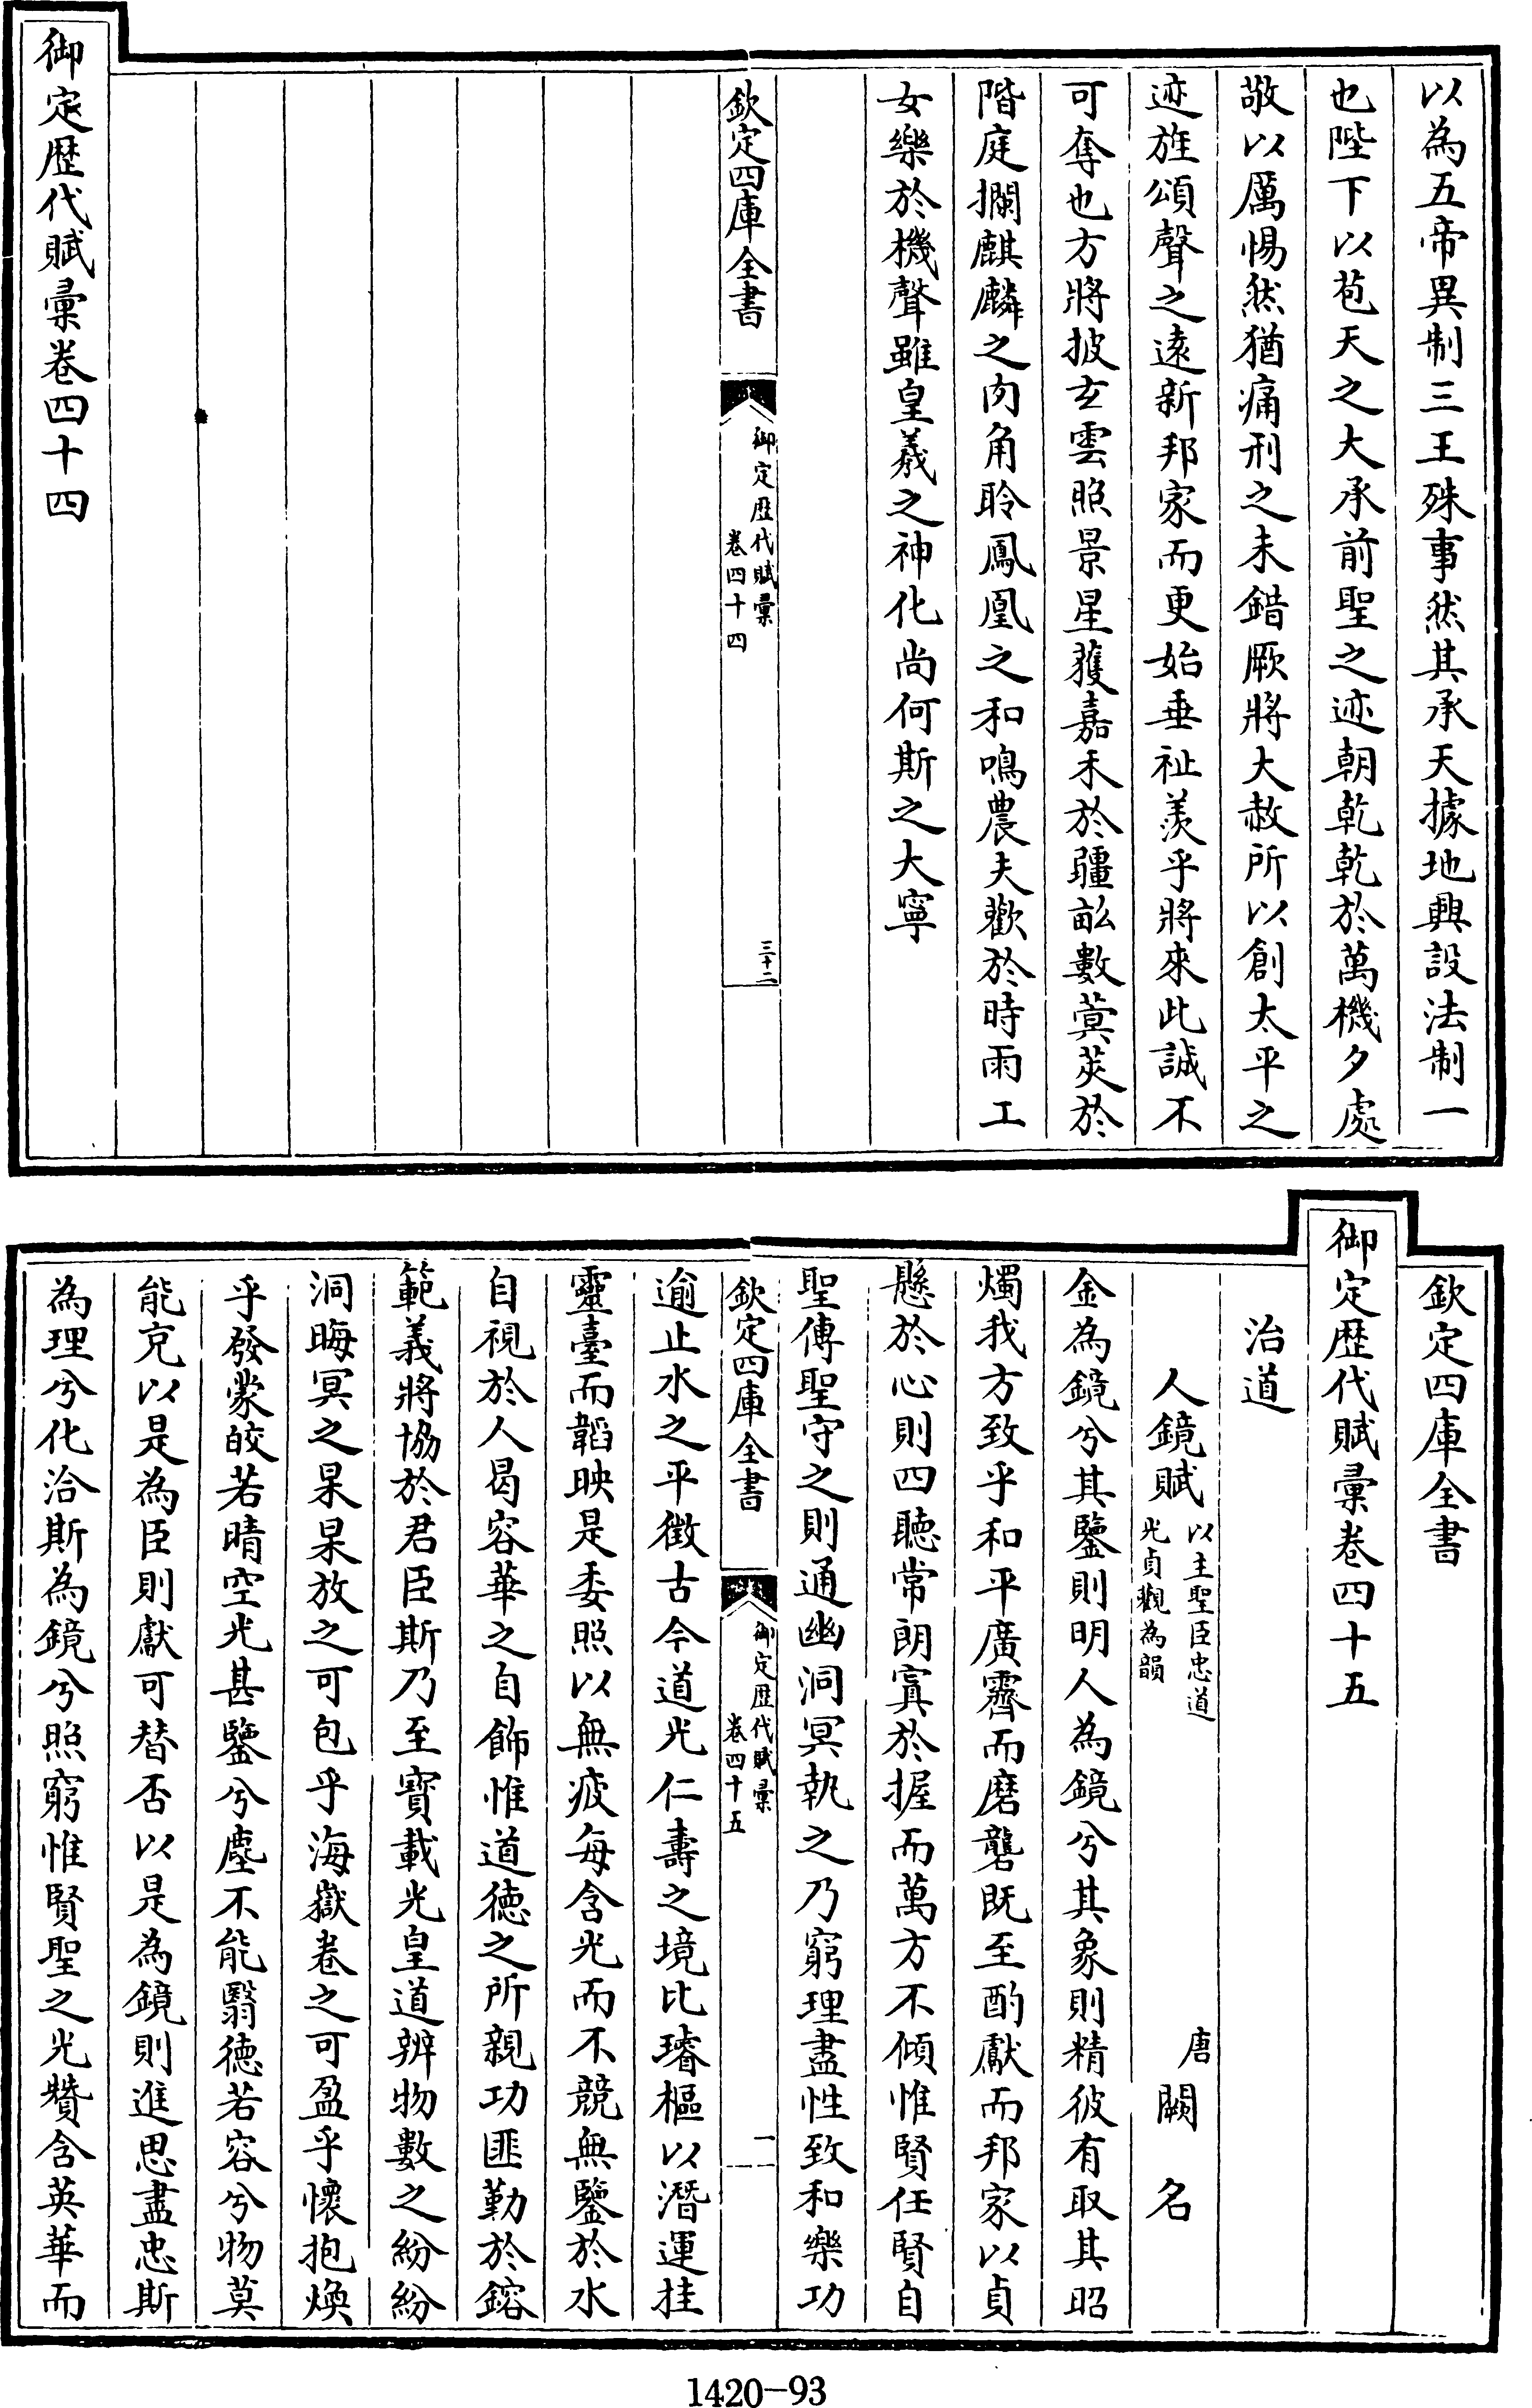 以為五帝異制三王殊事然其承天據地興設法制一
也陛下以苞天之大承前聖之迹朝乾乾於萬機夕處
敬以厲惕然猶痛刑之未錯厥將大赦所以創太平之
迹旌頌聲之遠新邦家而更始垂祉羨乎將來此誠不
可奪也方將披玄雲照景星獲嘉禾於疆畝數蓂莢於
階庭攔麒麟之肉角聆鳳凰之和鳴農夫歡於時雨工
女樂於機聲雖皇羲之神化尚何斯之大寧
欽定四庫全書
御定歴代賦彙
卷四十四
三十二
御定歴代賦彙卷四十四
欽定四庫全書
御定歴代賦彙卷四十五
治道
人鏡賦
以主聖臣忠道
光貞觀為韻
唐闕名
金為鏡兮其鑒則明人為鏡兮其象則精彼有取其昭
燭我方致乎和平廣霽而磨礱既至酌獻而邦家以貞
懸於心則四聽常朗寘於握而萬方不傾惟賢任賢自
聖傳聖守之則通幽洞冥執之乃窮理盡性致和樂功
逾止水之平徵古今道光仁壽之境比璿樞以潛運挂
靈臺而韜映是委照以無疲每含光而不競無鑒於水
自視於人曷容華之自飾惟道德之所親功匪勤於鎔
範義將協於君臣斯乃至寶載光皇道辨物數之紛紛
洞晦冥之杲杲放之可包乎海嶽卷之可盈乎懷抱煥
乎發蒙皎若晴空光甚鑒兮塵不能翳德若容兮物莫
能充以是為臣則獻可替否以是為鏡則進思盡忠斯
為理兮化洽斯為鏡兮照窮惟賢聖之光贊含英華而
欽定四庫全書
御定歴代賦彙
卷四十五
一
1420-93